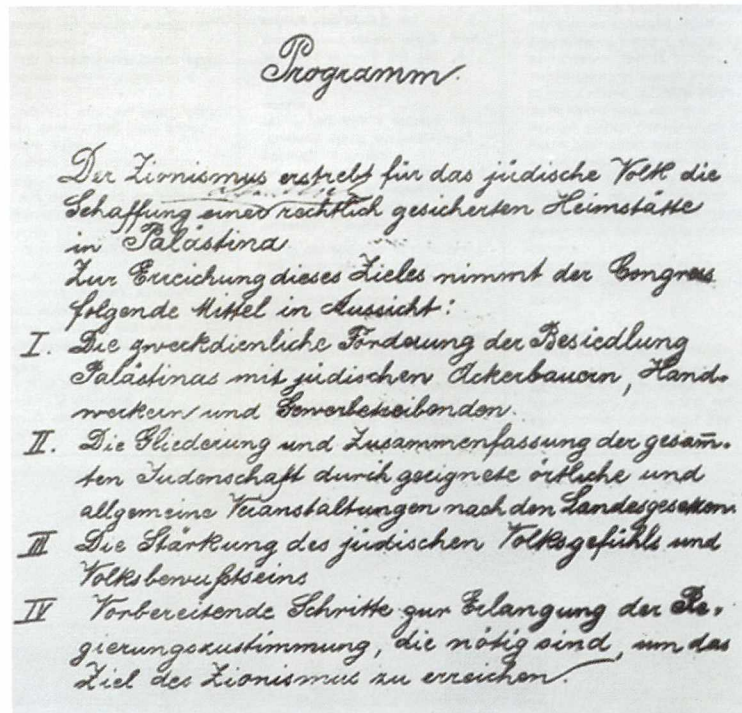 Programm.
Der Zionismus erstrebt für das jüdische Volk die
Schaffung einer rechtlich gesicherten Heimstätte
in Palästina
Zur Erreichung dieses Zieles nimmt der Congress
folgende Mittel in Aussicht:
I. Die zweckdienliche Förderung der Besiedlung
Palästinas mit jüdischen Ackerbauern, Hand-
werkern und Gewerbetreibenden.
II. Die Gliederung und Zusammenfassung der gesam̅-
ten Judenschaft durch geeignete örtliche und
allgemeine Veranstaltungen nach den Landesgesetzen.
III Die Stärkung des jüdischen Volksgefühls und
Volksbewußtseins
IV Vorbereitende Schritte zur Erlangung der Re-
gierungszustimmung, die nötig sind, um das
Ziel des Zionismus zu erreichen.